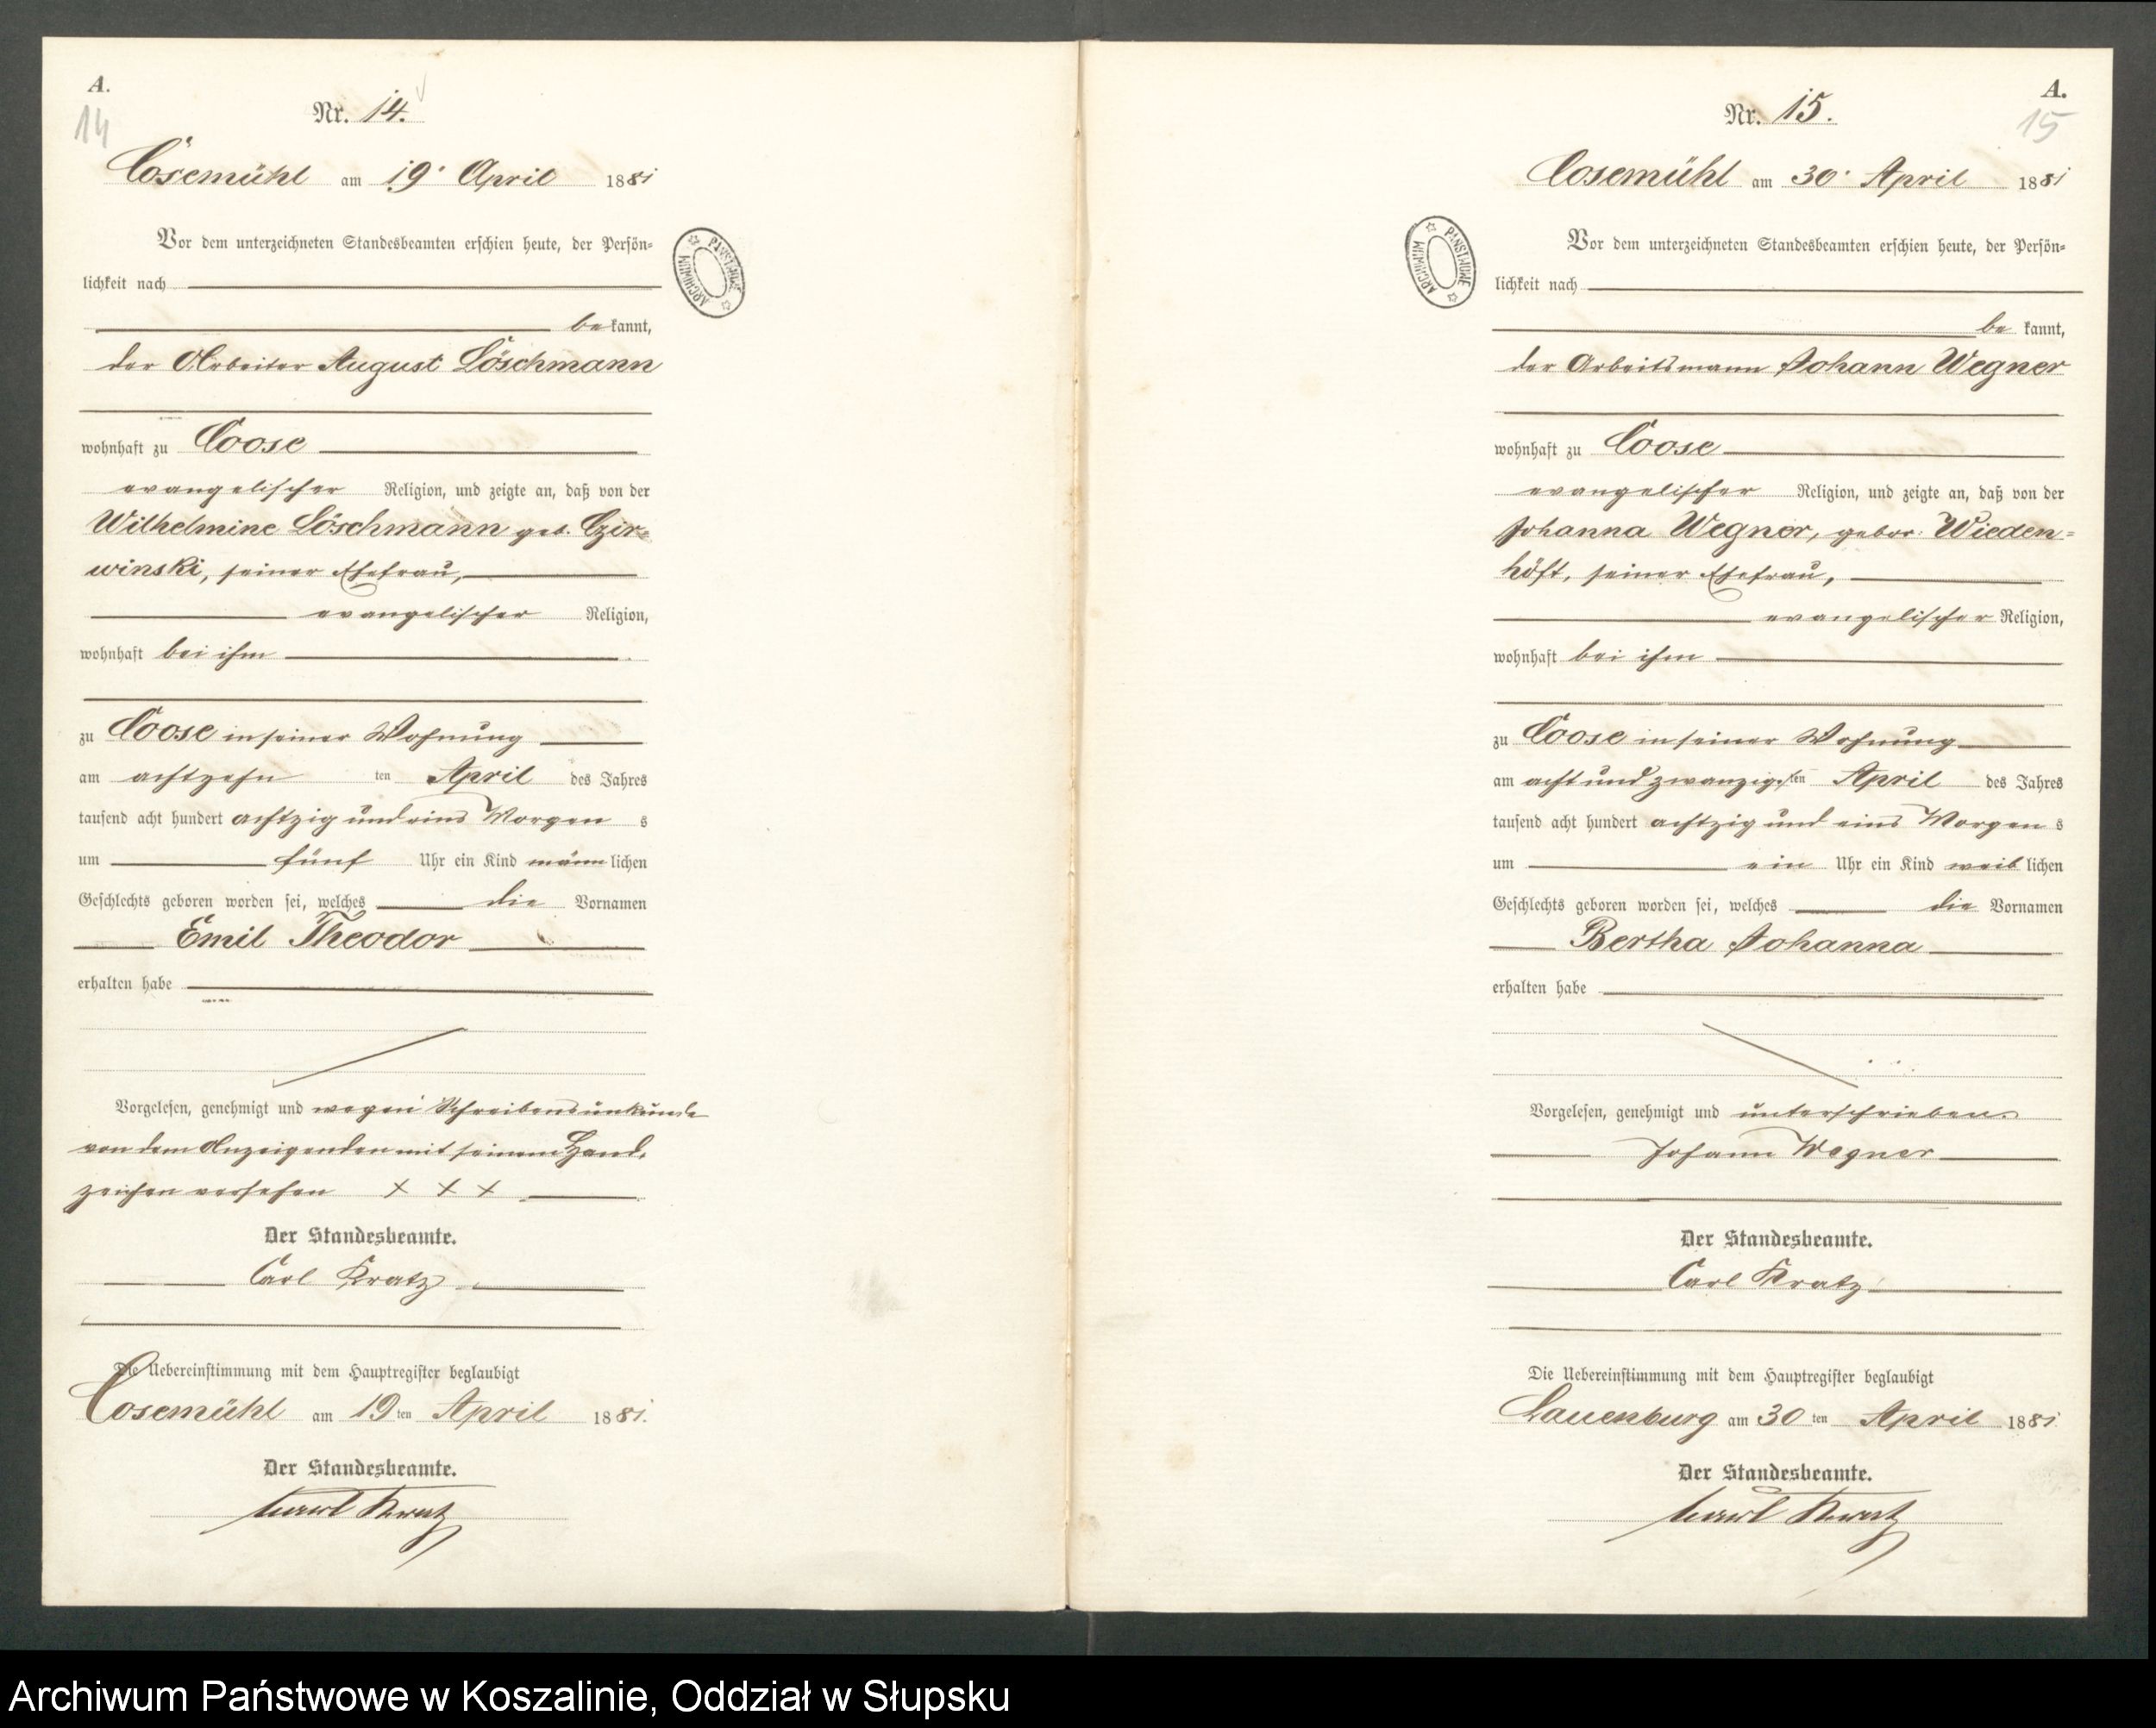 A.
14
Nr. 14.
Cosemühl am 19. April 1881
Vor dem unterzeichneten Standesbeamten erschien heute, der Persön=
lichkeit nach
bekannt,
der Arbeiter August Löschmann
wohnhaft zu Coose
evangelischer Religion, und zeigte an, daß von der
Wilhelmine Löschmann geb. Czir=
winski, seiner Ehefrau,
evangelischer Religion,
wohnhaft bei ihm
zu Coose in seiner Wohnung
am achtzehn ten April des Jahres
tausend acht hundert achtzig und eins Morgen s
um fünf Uhr ein Kind männlichen
Geschlechts geboren worden sei, welches die Vornamen
Emil Theodor
erhalten habe
Vorgelesen, genehmigt und wegen Schreibensunkunde
von dem Anzeigenden mit seinem Hand-
zeichen versehen + + +
Der Standesbeamte.
Carl Kratz
Die Uebereinstimmung mit dem Hauptregister beglaubigt
Cosemühl am 19 ten April 1881.
Der Standesbeamte.
Carl Kratz
ARCHIWUM PAŃSTWOWE
A.
15
Nr. 15.
Cosemühl am 30. April 1881
Vor dem unterzeichneten Standesbeamten erschien heute, der Persön=
lichkeit nach
be kannt,
der Arbeitsmann Johann Wegner
wohnhaft zu Coose
evangelischer Religion, und zeigte an, daß von der
Johanna Wegner, gebor. Wieden=
höft, seiner Ehefrau,
evangelischer Religion,
wohnhaft bei ihm
zu Coose in seiner Wohnung
am acht und zwanzigsten April des Jahres
tausend acht hundert achtzig und eins Morgen s
um ein Uhr ein Kind weib lichen
Geschlechts geboren worden sei, welches die Vornamen
Bertha Johanna
erhalten habe
Vorgelesen, genehmigt und unterschrieben.
Johann Wegner
Der Standesbeamte.
Carl Kratz
Die Uebereinstimmung mit dem Hauptregister beglaubigt
Lauenburg am 30 ten April 1881
Der Standesbeamte.
Carl Kratz
ARCHIWUM PAŃSTWOWE
Archiwum Państwowe w Koszalinie, Oddział w Słupsku